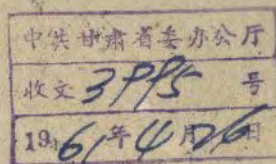 中共甘肃省委办公厅
收文3995号
1961年4月26日